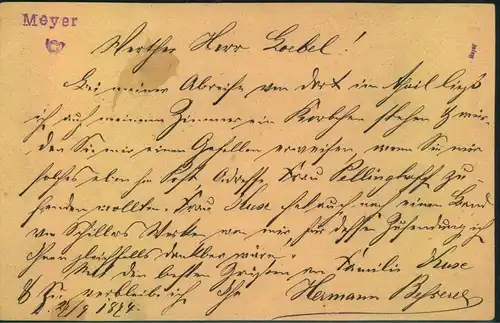 Meyer
Werther Herr Loebel!
Bei meiner Abreise von dort im April ließ
ich auf meinem Zimmer ein Körbchen stehen & würden
Sie mir einen Gefallen erweisen, wenn Sie mir
solches per Post, Adresse Frau Pellinghoff zusenden
wollten. Frau Kuse hat auch noch einen Band
von Schillers Werke von mir, für dessen Zusendung ich
Ihnen gleichfalls dankbar wäre.
Mit den besten Grüßen an Familie Kuse
& Sie verbleibe ich Ihr
Hermann Besserer
/9 1874